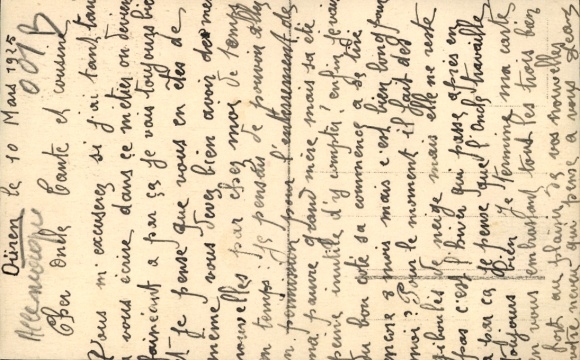 Düren le 10 Mars 1925
Allemagne
Cher Oncle Tante et cousine
Vous m'excuserez si j'ai tant tardé
a vous écrire dans ce métier on devient
faineant a par ça je vais toujours bien
et je pense que vous en êtes de
même vous devez bien avoir de mes
nouvelles par chez moi de temps
en temps je pensais de pouvoir aller
en permission pour l'enterrement de
ma pauvre grand mère mais sa été
peine inutile d'y compter enfin je vais
du bon coté sa commence a se tirer
encore 2 mois mais c'est bien long
moi? Pour le moment il fait des
giboulés de neige mais elle ne reste
pas c'est l'hiver qui passe après en
a par ça je pense que l'Oncle travaille
toujours bien Je termine ma carte
en vous embrassant tout les trois bien
fort au plaisir de vos nouvelles
votre neveu qui pense a vous Jean